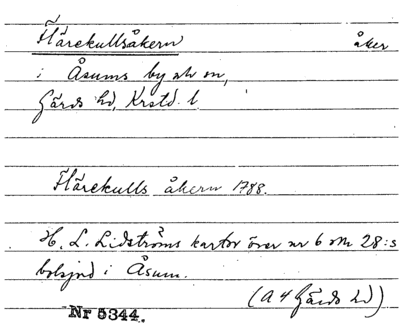 Härekullsåkern åker
i Åsums by och sn,
Gärds hd, Krstd. l.
Härekulls åkern 1788.
H. L. Lidströms kartor över nr 6 och 28:s
bolsjord i Åsum.
(A 4 Gärds hd)
Nr 5344.